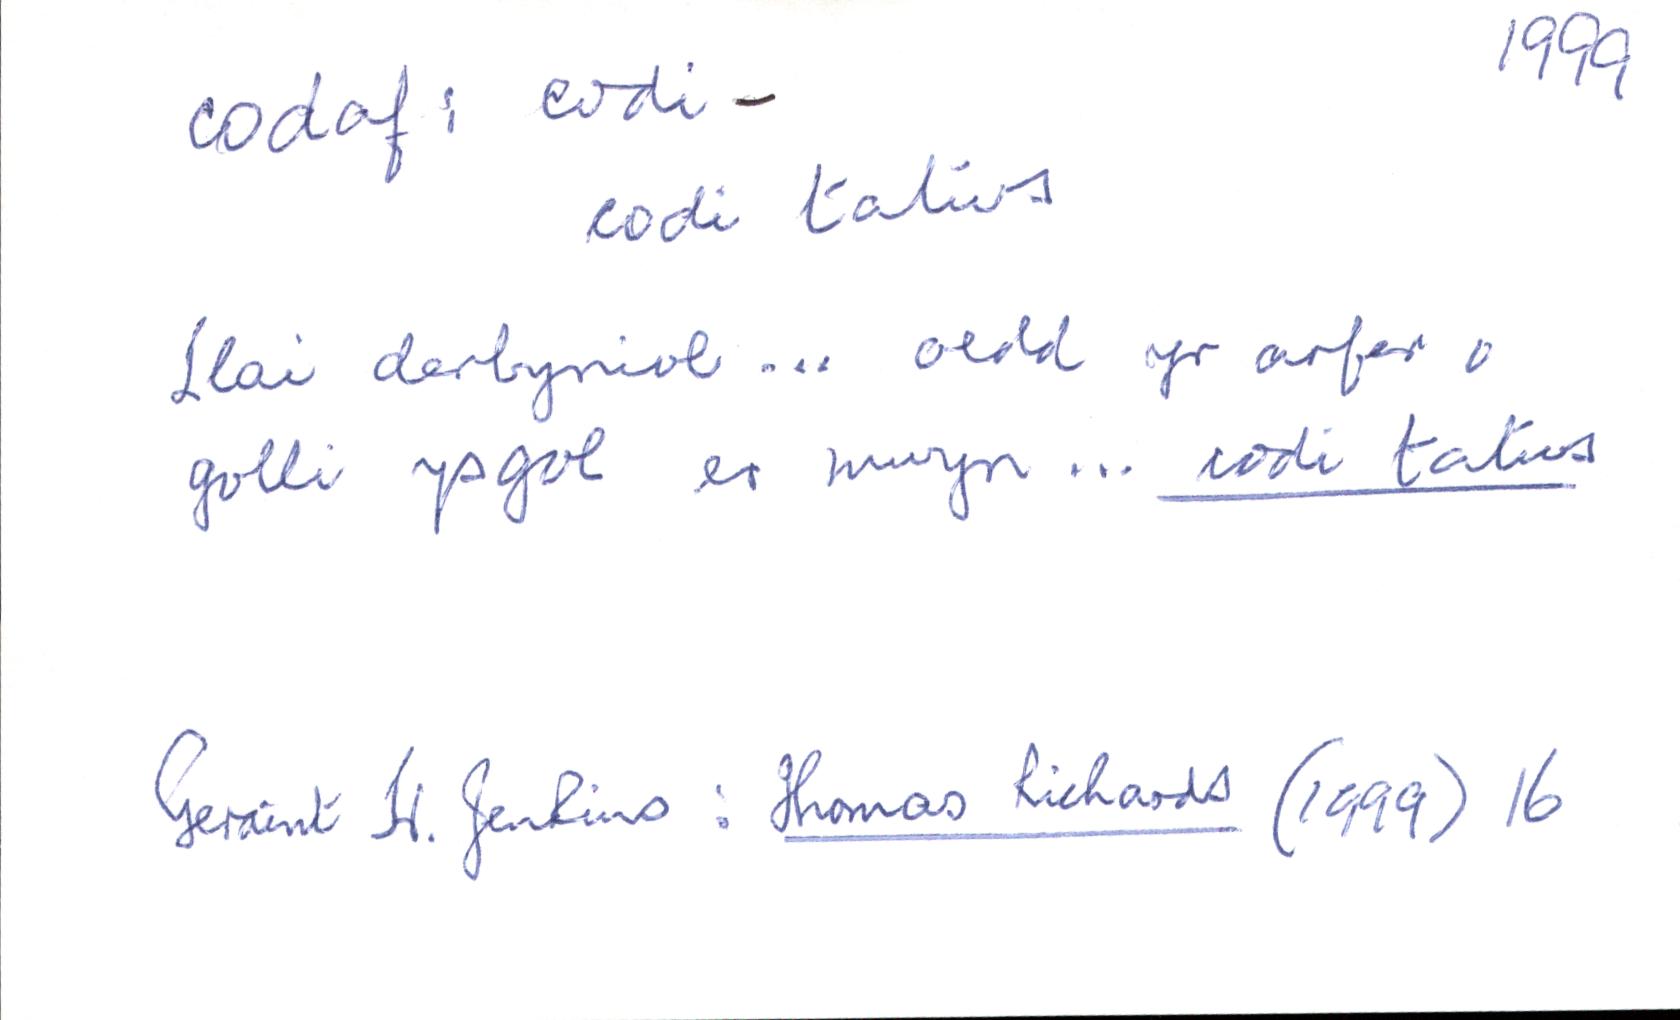 1999
codaf: codi -
codi tatws
Llai derbyniol ... oedd yr arfer o
golli ysgol er mwyn ... codi tatws
Geraint H. Jenkins : Thomas Richards (1999) 16